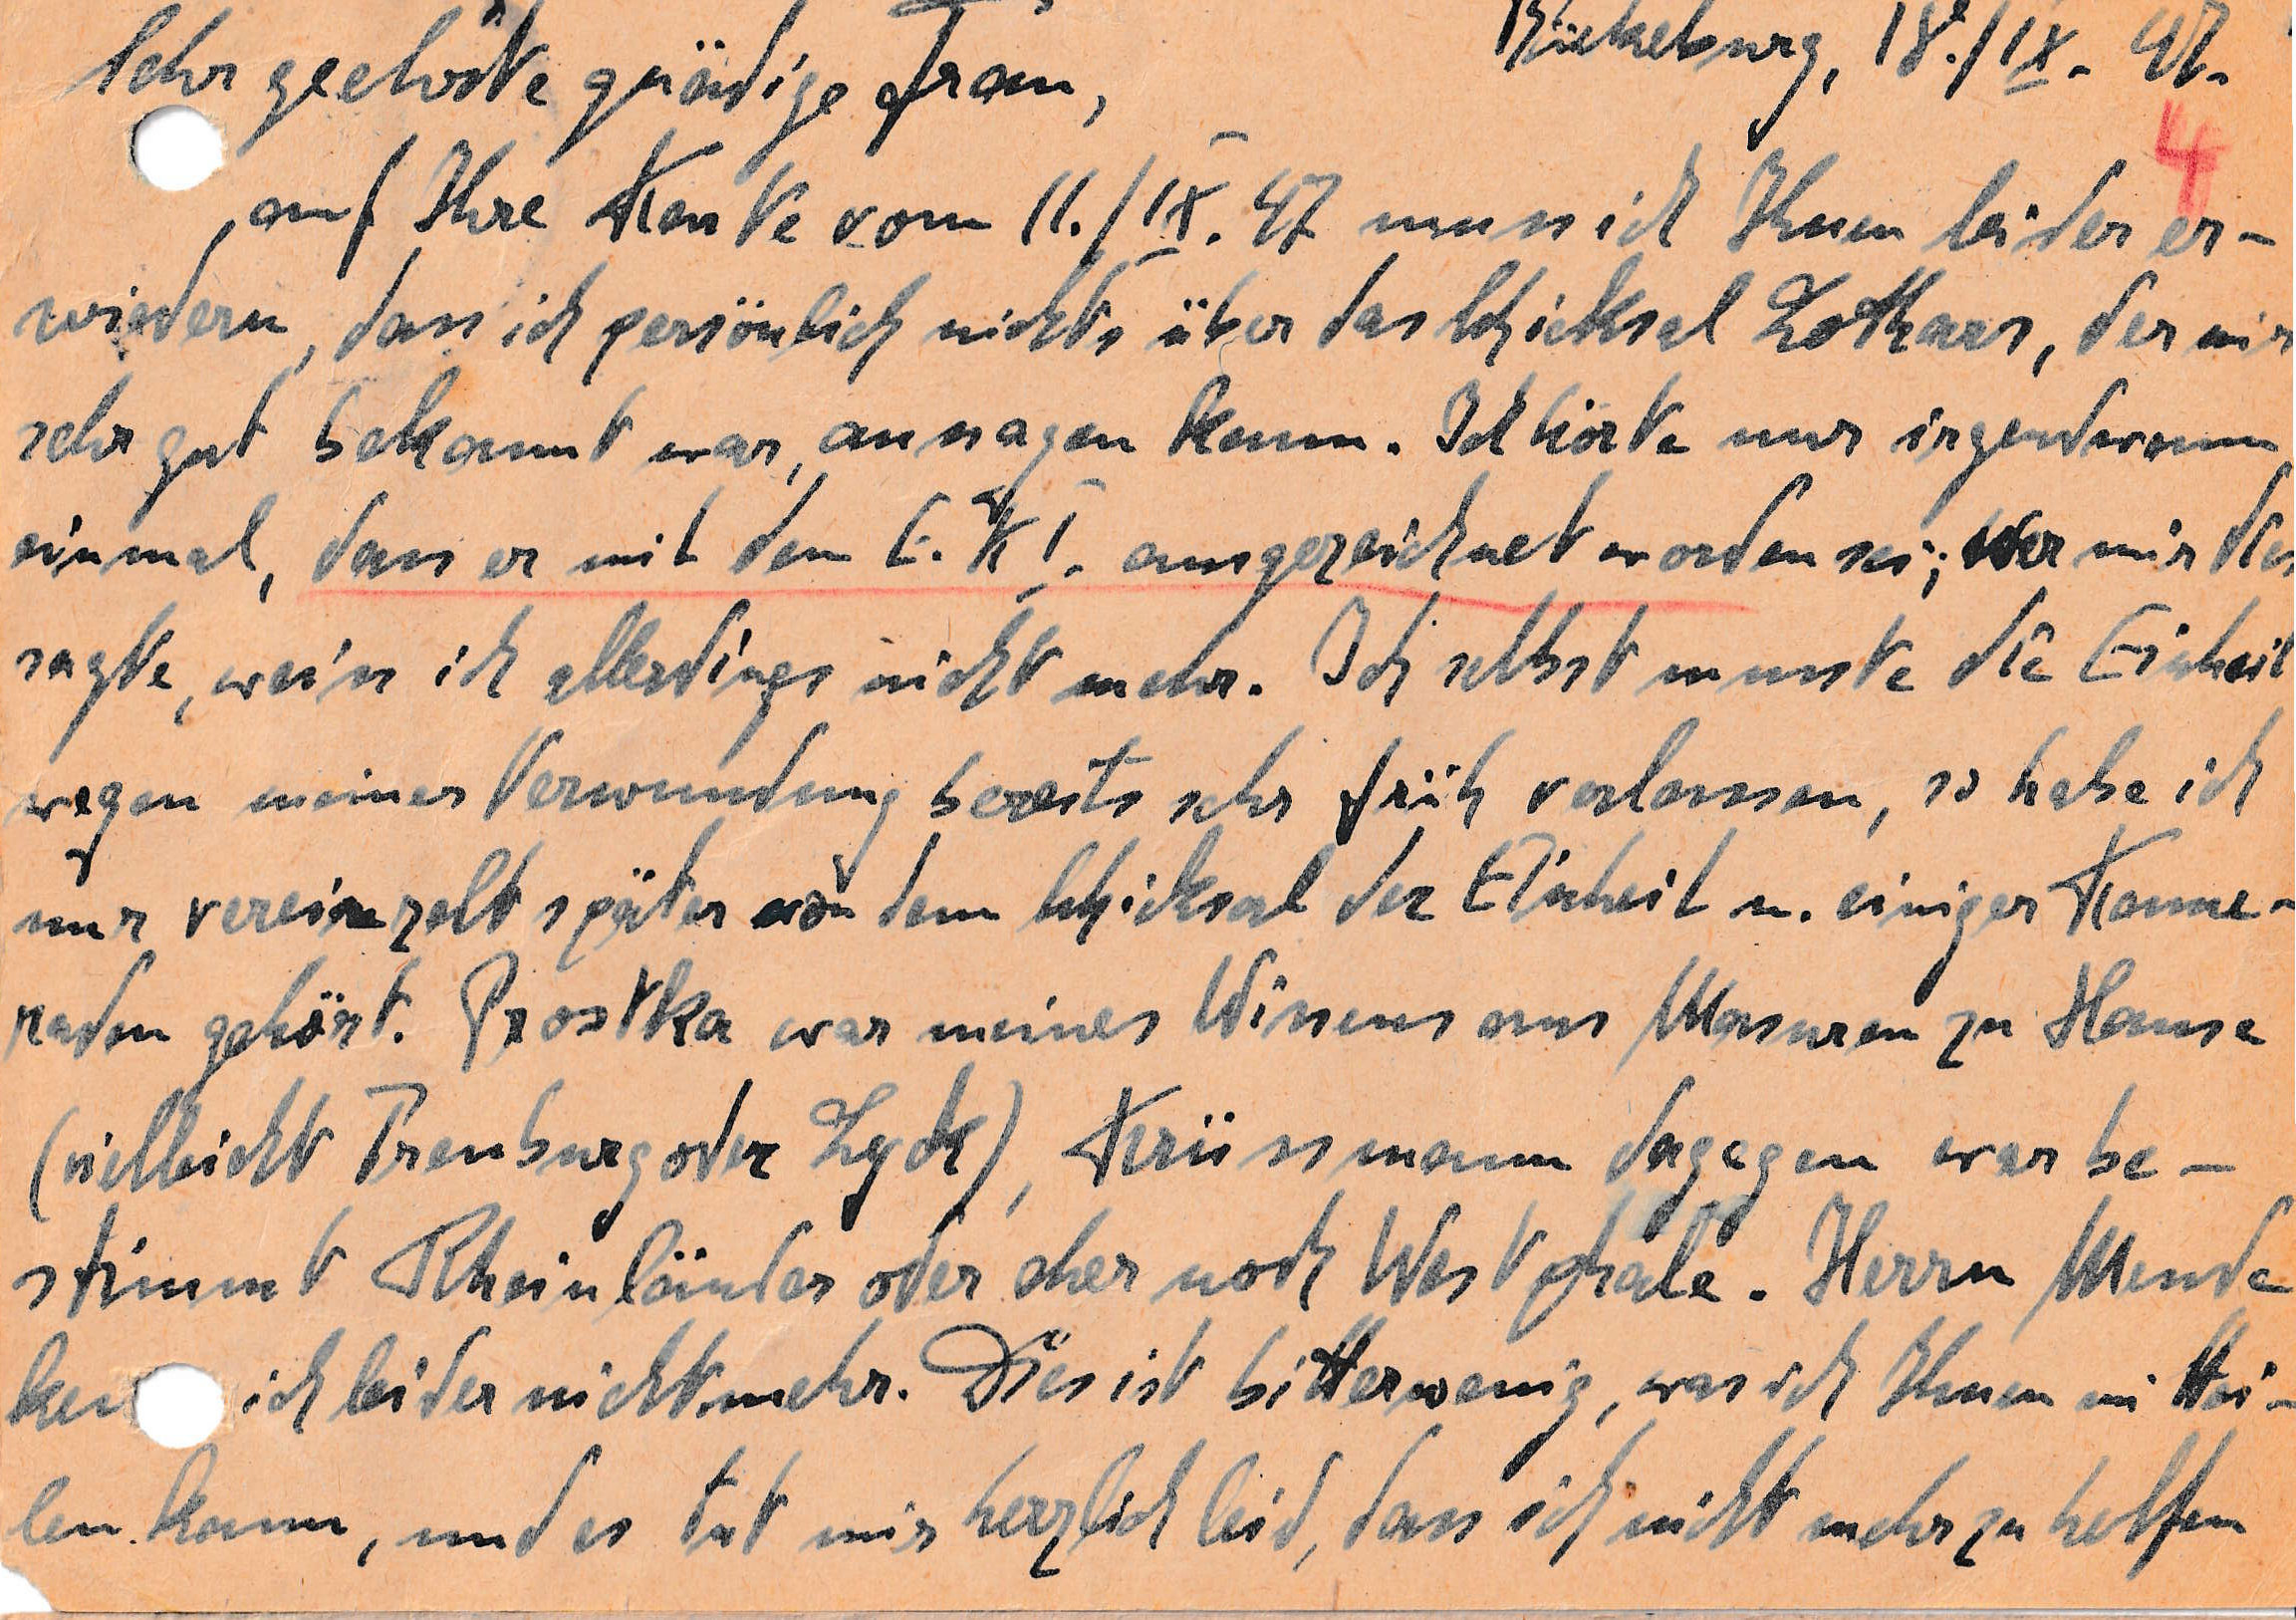 Bückeburg, 18./IX. 47.
Sehr geehrte gnädige Frau,
4
auf Ihre Karte vom 11./IX. 47 muss ich Ihnen leider er-
wiedern, dass ich persönlich nichts über das Schicksal Lothars, der mir
sehr gut bekannt war, aussagen kann. Ich hörte nur irgendwann
einmal, dass er mit dem E.K I. ausgezeichnet worden sei; wer mir das
sagte, weiss ich allerdings nicht mehr. Ich selbst musste die Einheit
wegen meiner Verwundung bereits sehr früh verlassen, so habe ich
nur vereinzelt später von dem Schicksal der Einheit u. einiger Kame-
raden gehört. Prostka war meines Wissens aus Masuren zu Hause
(vielleicht Treuburg oder Lyck), Krüssmann dagegen war be-
stimmt Rheinländer oder eher noch Westphale. Herrn Mende
ken ich leider nicht mehr. Dies ist bitterwenig, was ich Ihnen mittei-
len kann, und es tut mir herzlich leid, dass ich nicht mehr zu helfen